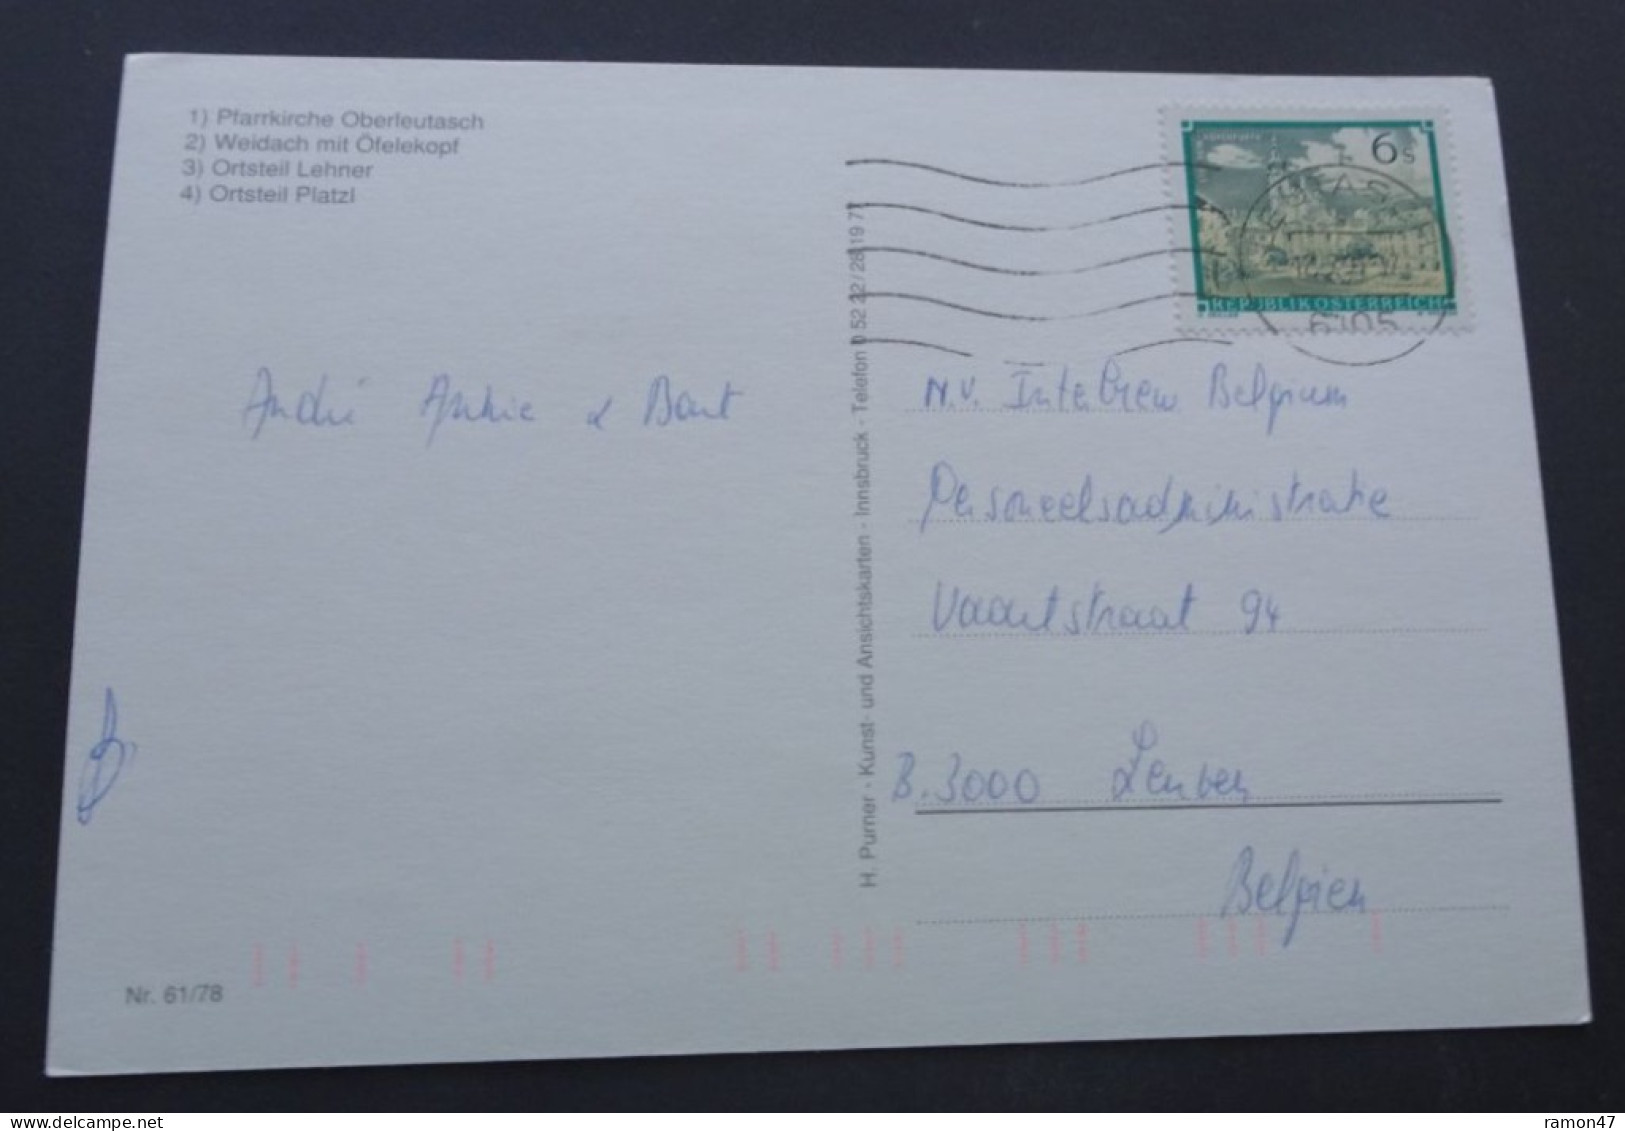 1) Pfarrkirche Oberleutasch
2) Weidach mit Öfelekopf
3) Ortsteil Lehner
4) Ortsteil Platzl
6 s
REPUBLIK ÖSTERREICH
6105
André Ankie & Bart
N.V. Interbrew Belgium
Personeelsadministratie
Vaartstraat 94
B. 3000 Leuven
Belgien
H. Purner - Kunst- und Ansichtskarten - Innsbruck - Telefon 0 52 22 / 28 19 77
Nr. 61/78
ramon47